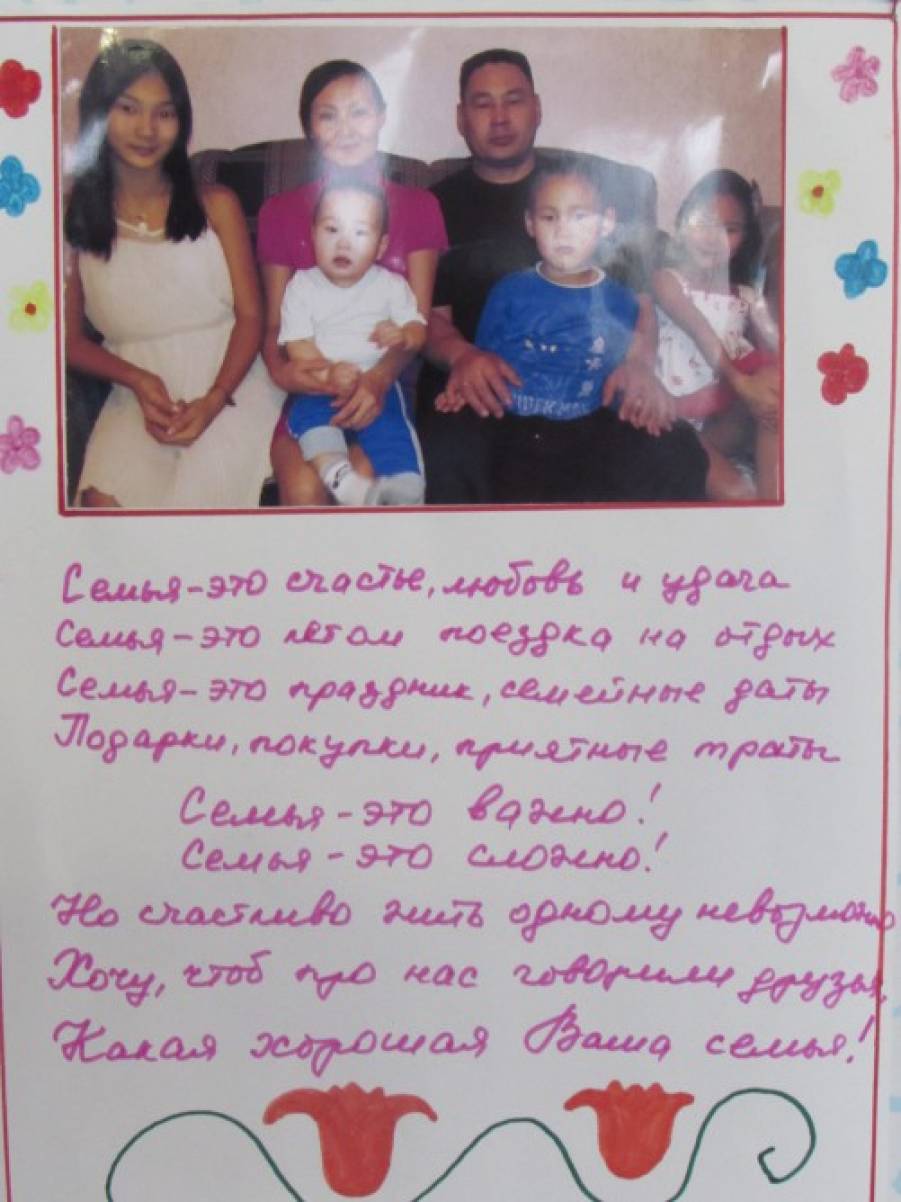 SPIDER-MAN
Семья-это счастье, любовь и удача
Семья-это летом поездка на отдых
Семья-это праздник, семейные даты
Подарки, покупки, приятные траты
Семья-это важно!
Семья-это сложно!
Но счастливо жить одному невозможно
Хочу, чтоб про нас говорили друзья,
Какая хорошая Ваша семья!